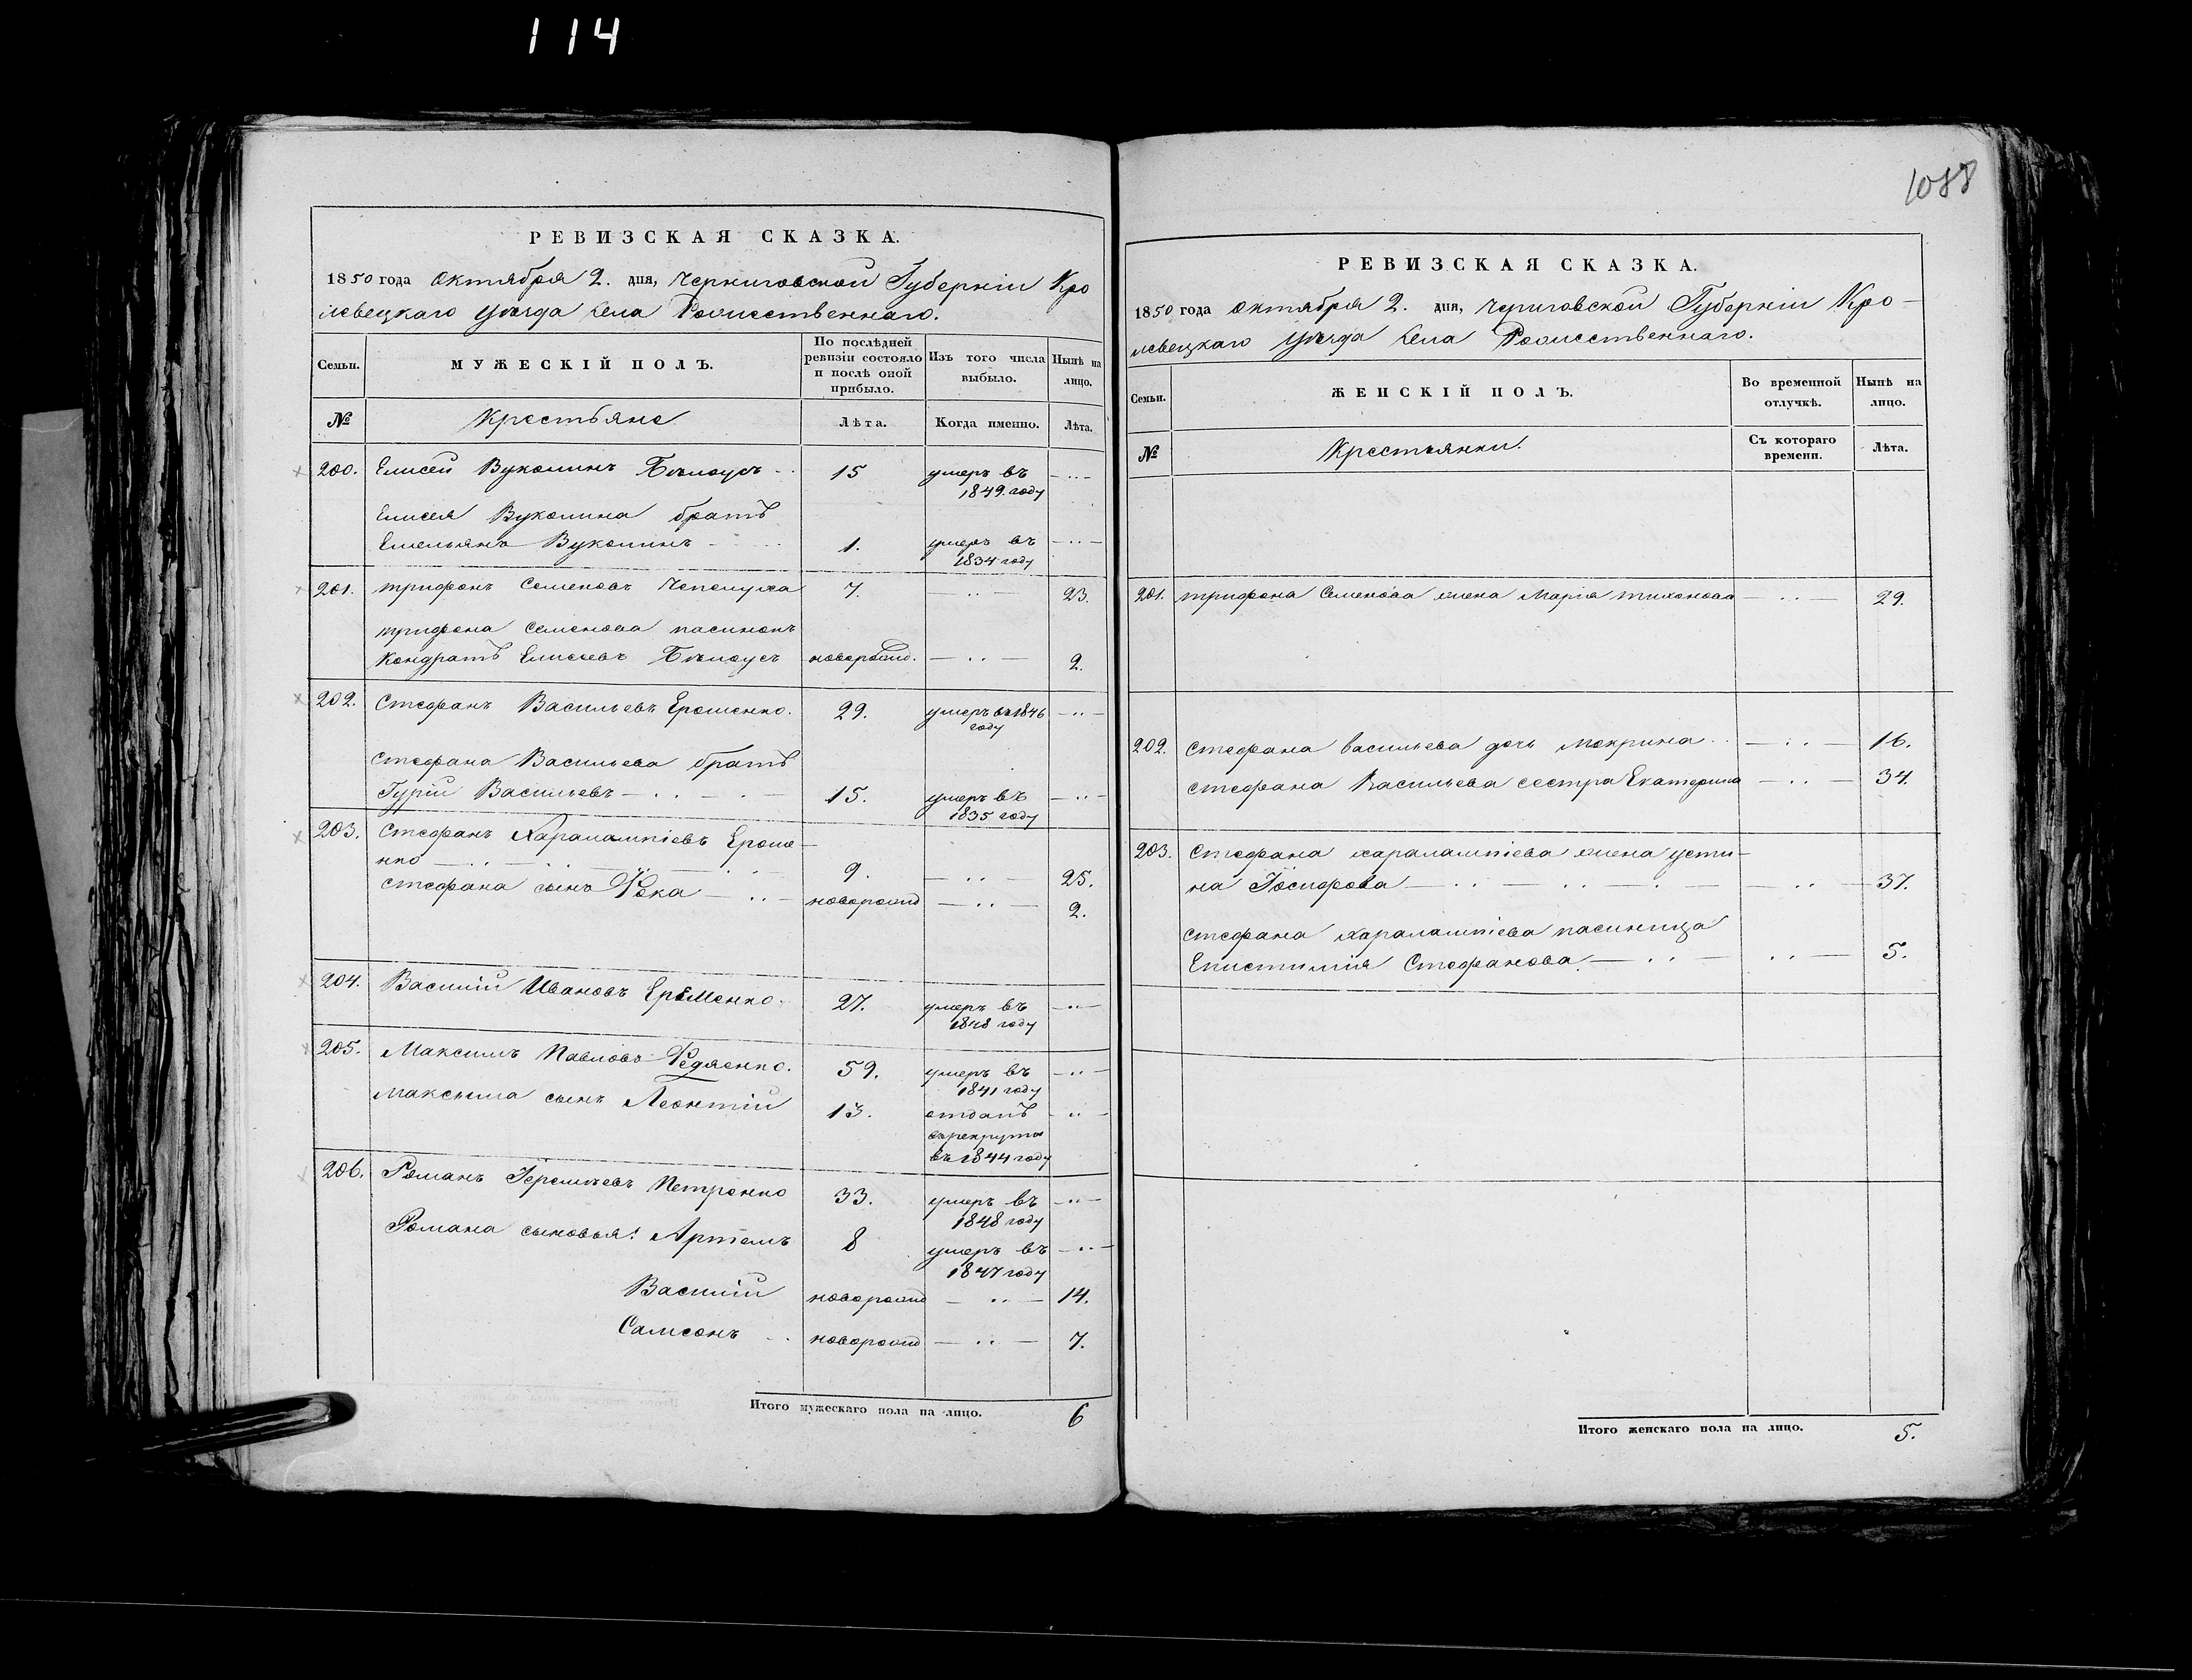 114
РЕВИЗСКАЯ СКАЗКА.
1850 года Октября 2. дня, Черниговской Губерніи Кро
левецкаго уѣзда села Рождественнаго.
Семьи.
МУЖЕСКІЙ ПОЛЪ.
По послѣдней ревизіи состояло и послѣ оной прибыло.
Изъ того числа выбыло.
Нынѣ на лицо.
№
Крестьяне
Лѣта.
Когда именно.
Лѣта.
200. Елисей Вуколинъ Бѣлоусъ 15 умеръ въ
1849. году
Елисея Вуколина братъ
Емельянъ Вуколинъ 1. умеръ въ
1834 году
201. Трифонъ Семеновъ Чепелуха 7. 23.
Трифона Семенова пасинокъ
Кондратъ Елисѣевъ Бѣлоусъ новорожд. 2.
202. Стефанъ Васильевъ Ерошенко. 29. умеръ въ 1846
году
Стефана Васильева братъ
Гурій Васильевъ 15. умеръ въ
1835 году
203. Стефанъ Харалампіевъ Ероше-
нко 9. 25.
Стефана сынъ Фока новорожд 2.
204. Василій Ивановъ Ерёменко. 27. умеръ въ
1848 году
205. Максимъ Павловъ Федяенко. 59. умеръ въ
1841 году
Максима сынъ Леонтій 13. отданъ
въ рекруты
въ 1844 году
206. Романъ Іеремѣевъ Петренко 33. умеръ въ
1848 году
Романа сыновья: Артемъ 8 умеръ въ
1847 году
Василій новорожд 14.
Самсонъ новорожд 7.
Итого мужескаго пола на лицо. 6
1088
РЕВИЗСКАЯ СКАЗКА.
1850 года Октября 2. дня, Черниговской Губерніи Кро-
левецкаго уѣзда села Рождественнаго.
Семьи.
ЖЕНСКІЙ ПОЛЪ.
Во временной отлучкѣ.
Нынѣ на лицо.
№
Крестьянки.
Съ котораго времени.
Лѣта.
201. Трифона Семенова жена Марія Тихонова 29.
202. Стефана Васильева дочь Мокрина 16.
Стефана Васильева сестра Екатерина 34.
203. Стефана Харалампіева жена Усти-
на Іосифова 37.
Стефана Харалампіева пасинница
Епистимія Стефанова. 5.
Итого женскаго пола на лицо. 5.